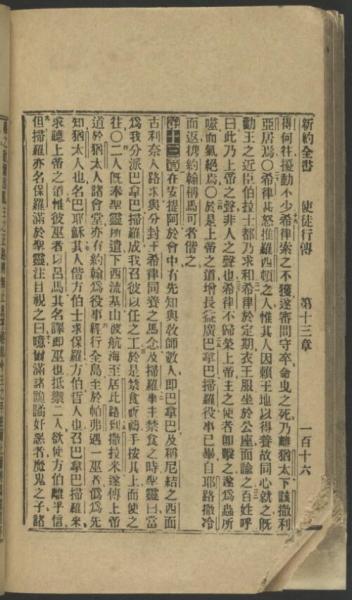 新約全書 使徒行傳 第十三章 一百十六
得何往擾動不少希律索之不獲遂審問守卒命曳之死乃離猶太下該撒利
亞居焉〇希律甚怒推羅西頓之人惟其人因賴王地以得養故同心就之旣
勸王之近臣伯拉士都乃求和希律於定期衣王服坐於公座而諭之百姓呼
曰此乃上帝之聲非人之聲也希律不歸榮上帝主之使者卽擊之遂爲蟲所
囓而氣絕焉〇於是上帝之道增長益廣巴拿巴掃羅役事已畢自耶路撒冷
而返携約翰稱馬可者偕之
第十三章 在安提阿於會中有先知與敎師數人卽巴拿巴及稱尼結之西面
古利奈人路求與分封王希律同養之馬念及掃羅事主禁食之時聖靈曰當
爲我分派巴拿巴掃羅成我召彼以任之工於是禁食祈禱手按其上而使之
往〇二人旣奉聖靈所遣下西流基由彼航海至居比路到撒拉米遂傳上帝
道於猶太人諸會堂亦有約翰爲役事經行全島至於帕弗遇一巫者僞爲先
知猶太人也名巴耶穌其人偕方伯士求保羅方伯哲人也召巴拿巴掃羅來
求聽上帝之道惟彼巫者以呂馬其名譯卽巫也抵禦二人欲使方伯離乎信
但掃羅亦名保羅滿於聖靈注目視之曰噫爾滿諸詭譎奸惡者魔鬼之子諸